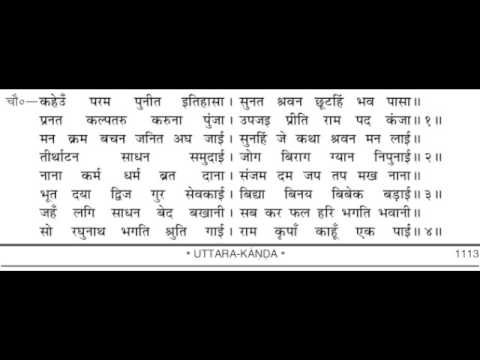 चौ०— कहेउँ परम पुनीत इतिहासा । सुनत श्रवन छूटहिं भव पासा ॥
प्रनत कल्पतरु करुना पुंजा । उपजइ प्रीति राम पद कंजा ॥ १ ॥
मन क्रम बचन जनित अघ जाई । सुनहिं जे कथा श्रवन मन लाई ॥
तीर्थाटन साधन समुदाई । जोग बिराग ग्यान निपुनाई ॥ २ ॥
नाना कर्म धर्म ब्रत दाना । संजम दम जप तप मख नाना ॥
भूत दया द्विज गुर सेवकाई । बिद्या बिनय बिबेक बड़ाई ॥ ३ ॥
जहँ लगि साधन बेद बखानी । सब कर फल हरि भगति भवानी ॥
सो रघुनाथ भगति श्रुति गाई । राम कृपाँ काहूँ एक पाई ॥ ४ ॥
* UTTARA-KANDA * 1113